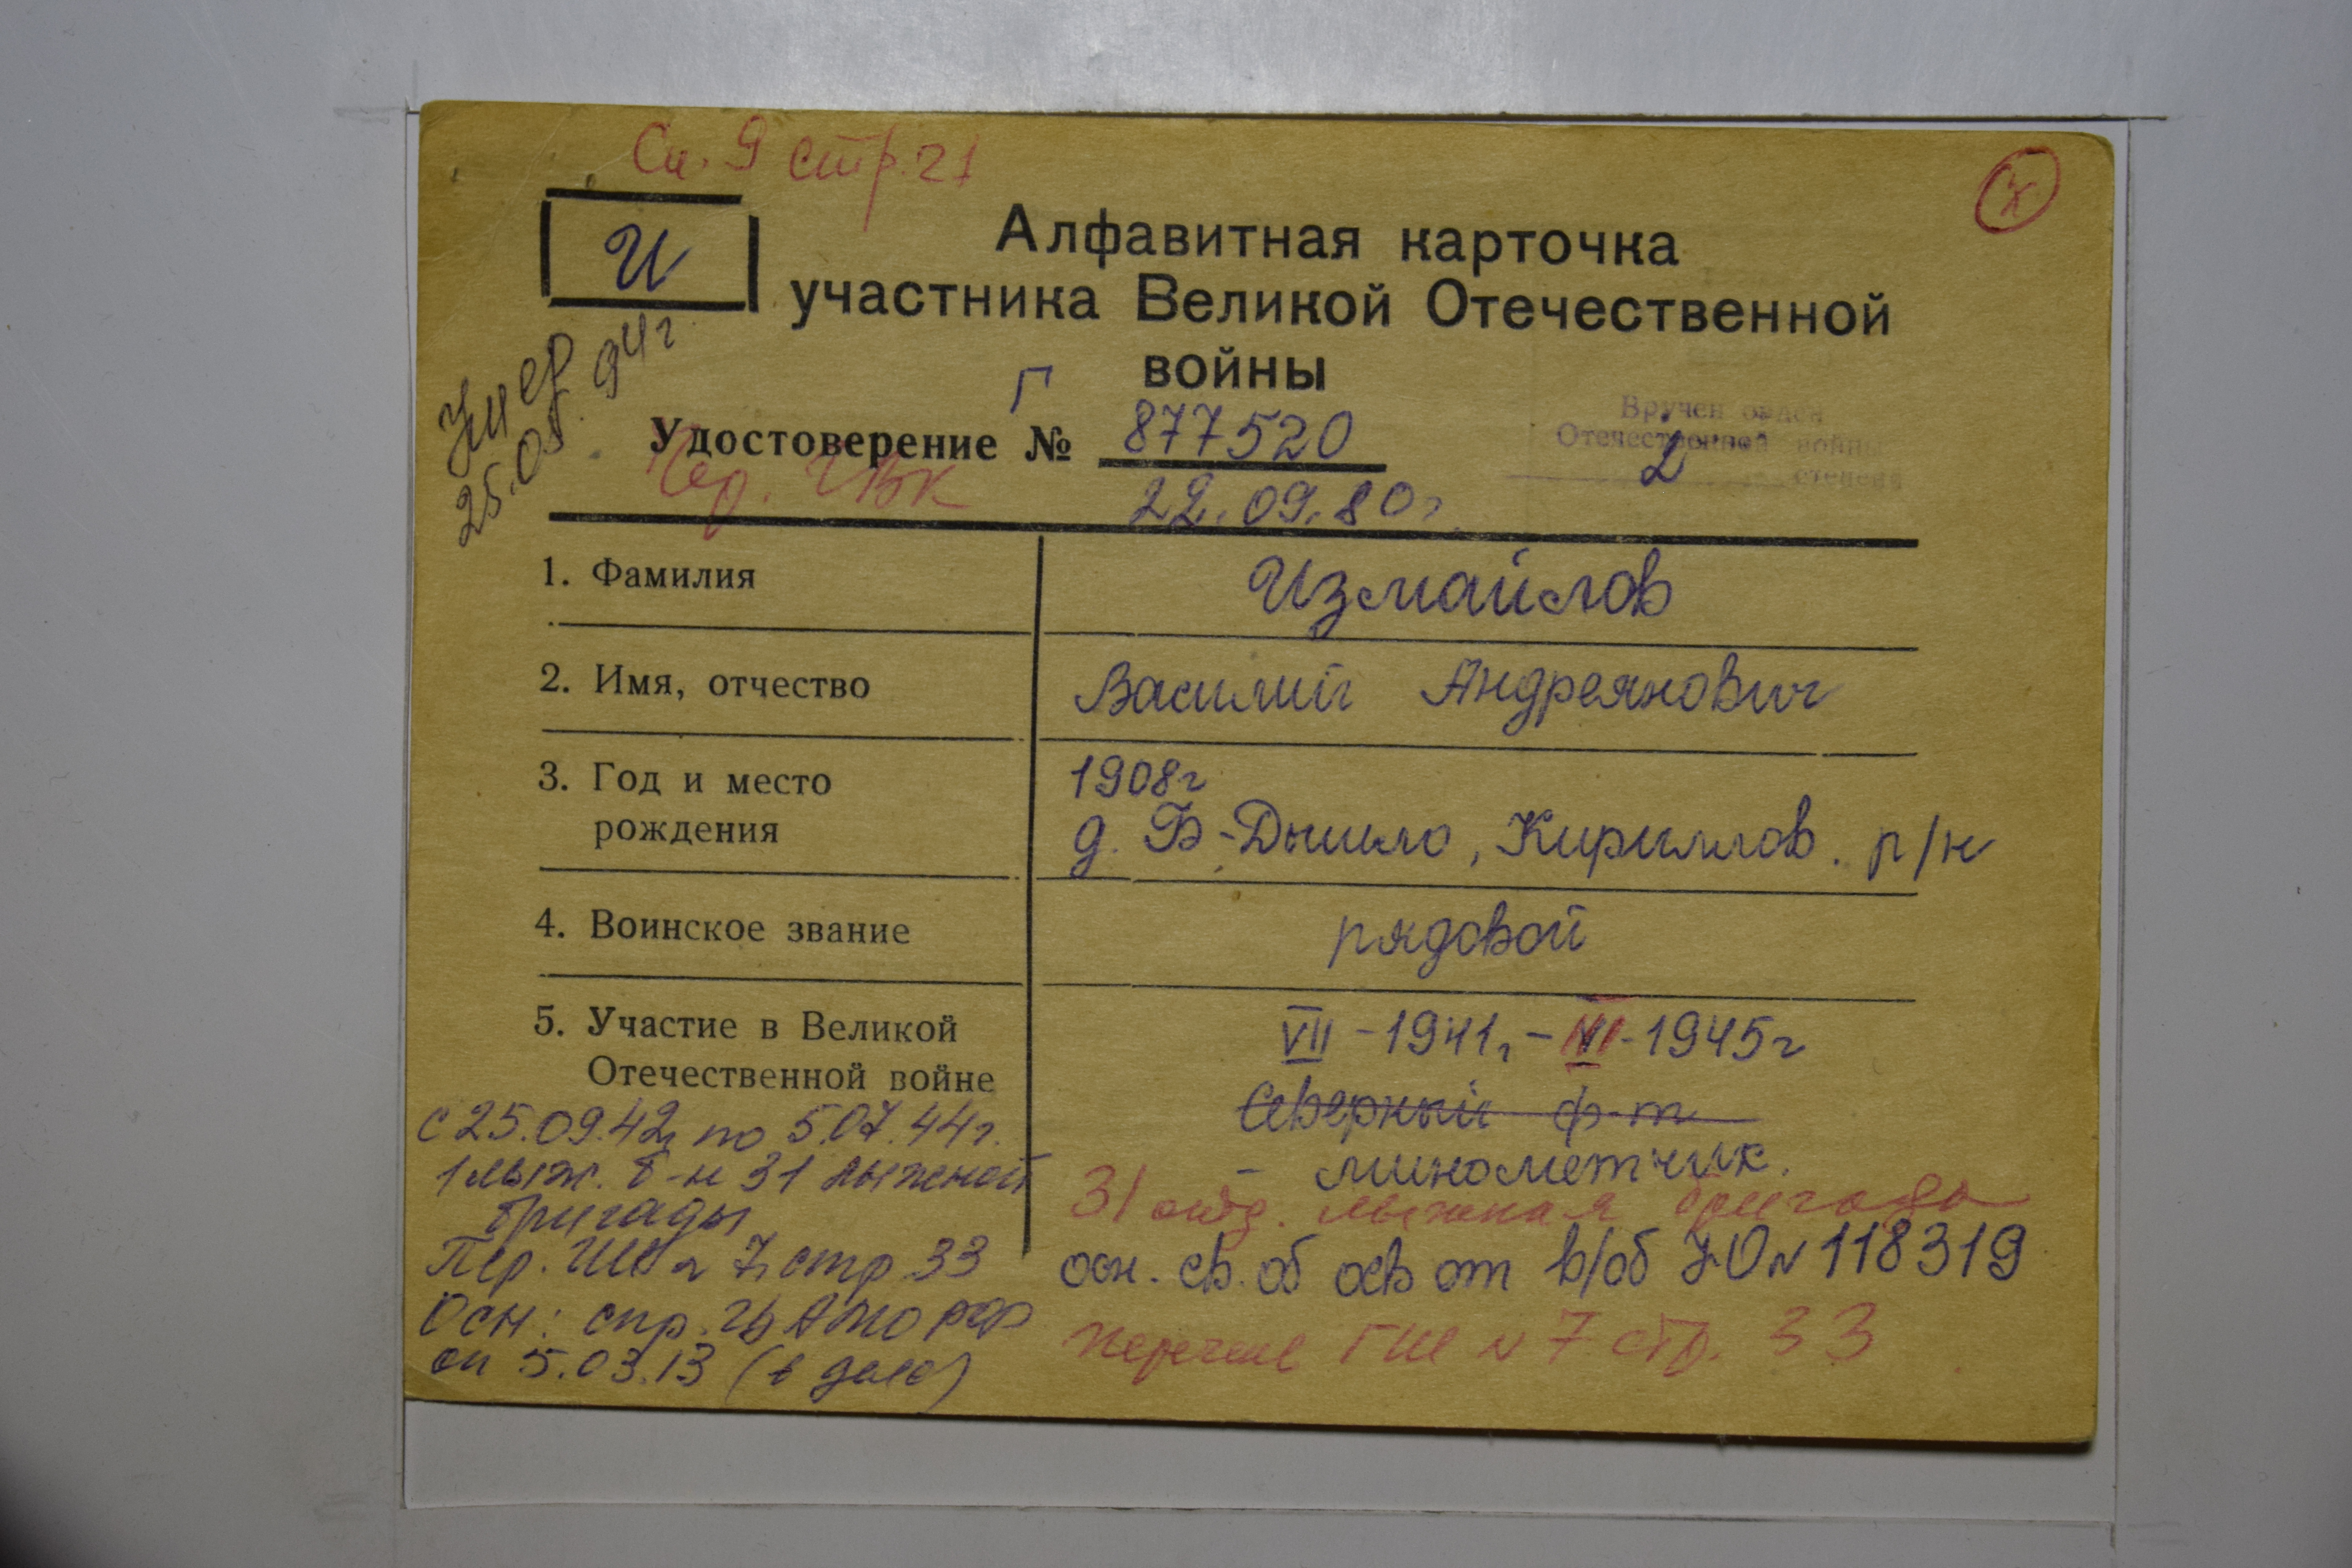 Сп. 9 стр. 21
И
Алфавитная карточка
участника Великой Отечественной
войны
Умер
25.05.94г
Г
Удостоверение № 877520
22.09.80г.
Вручен орден
Отечественной войны
2 степени
1. Фамилия
Измайлов
2. Имя, отчество
Василий Андреянович
3. Год и место
рождения
1908г
д. Б-Дышло, Кириллов. р/н
4. Воинское звание
рядовой
5. Участие в Великой
Отечественной войне
VII-1941г,- -1945г
Северный ф-т
- минометчик.
31 отд. лыжная бригада
осн. св. об осв от в/об №118319
перечень ГШ N7 стр. 33
с 25.09.42г по 5.07.44г.
1 лыж. б-н 31 лыжной
бригады
Пер. 7, стр 33
Осн: спр. ЦАМО РФ
от 5.03.13 (в деле)